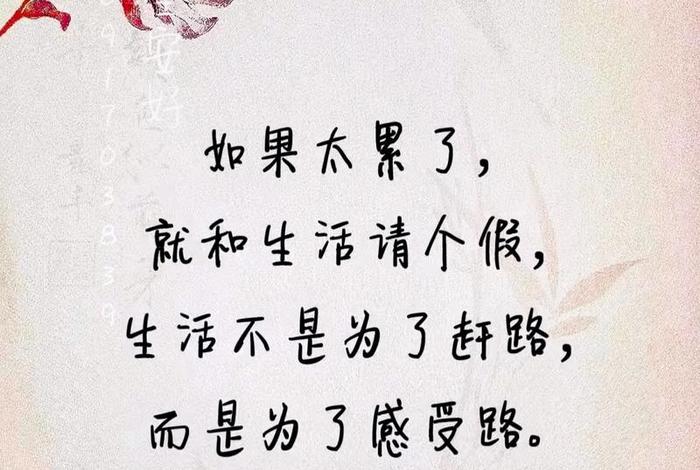 如果太累了，
就和生活请个假，
生活不是为了赶路，
而是为了感受路。